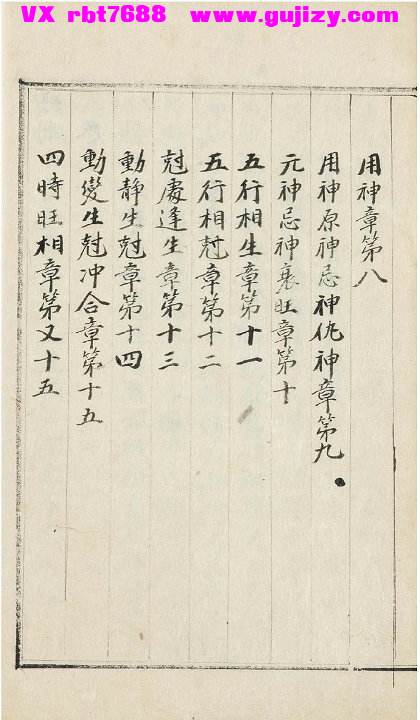 VX rbt7688 www.gujizy.com
用神章第八
用神原神忌神仇神章第九
元神忌神衰旺章第十
五行相生章第十一
五行相尅章第十二
尅處逢生章第十三
動靜生尅章第十四
動變生尅冲合章第十五
四時旺相章第又十五